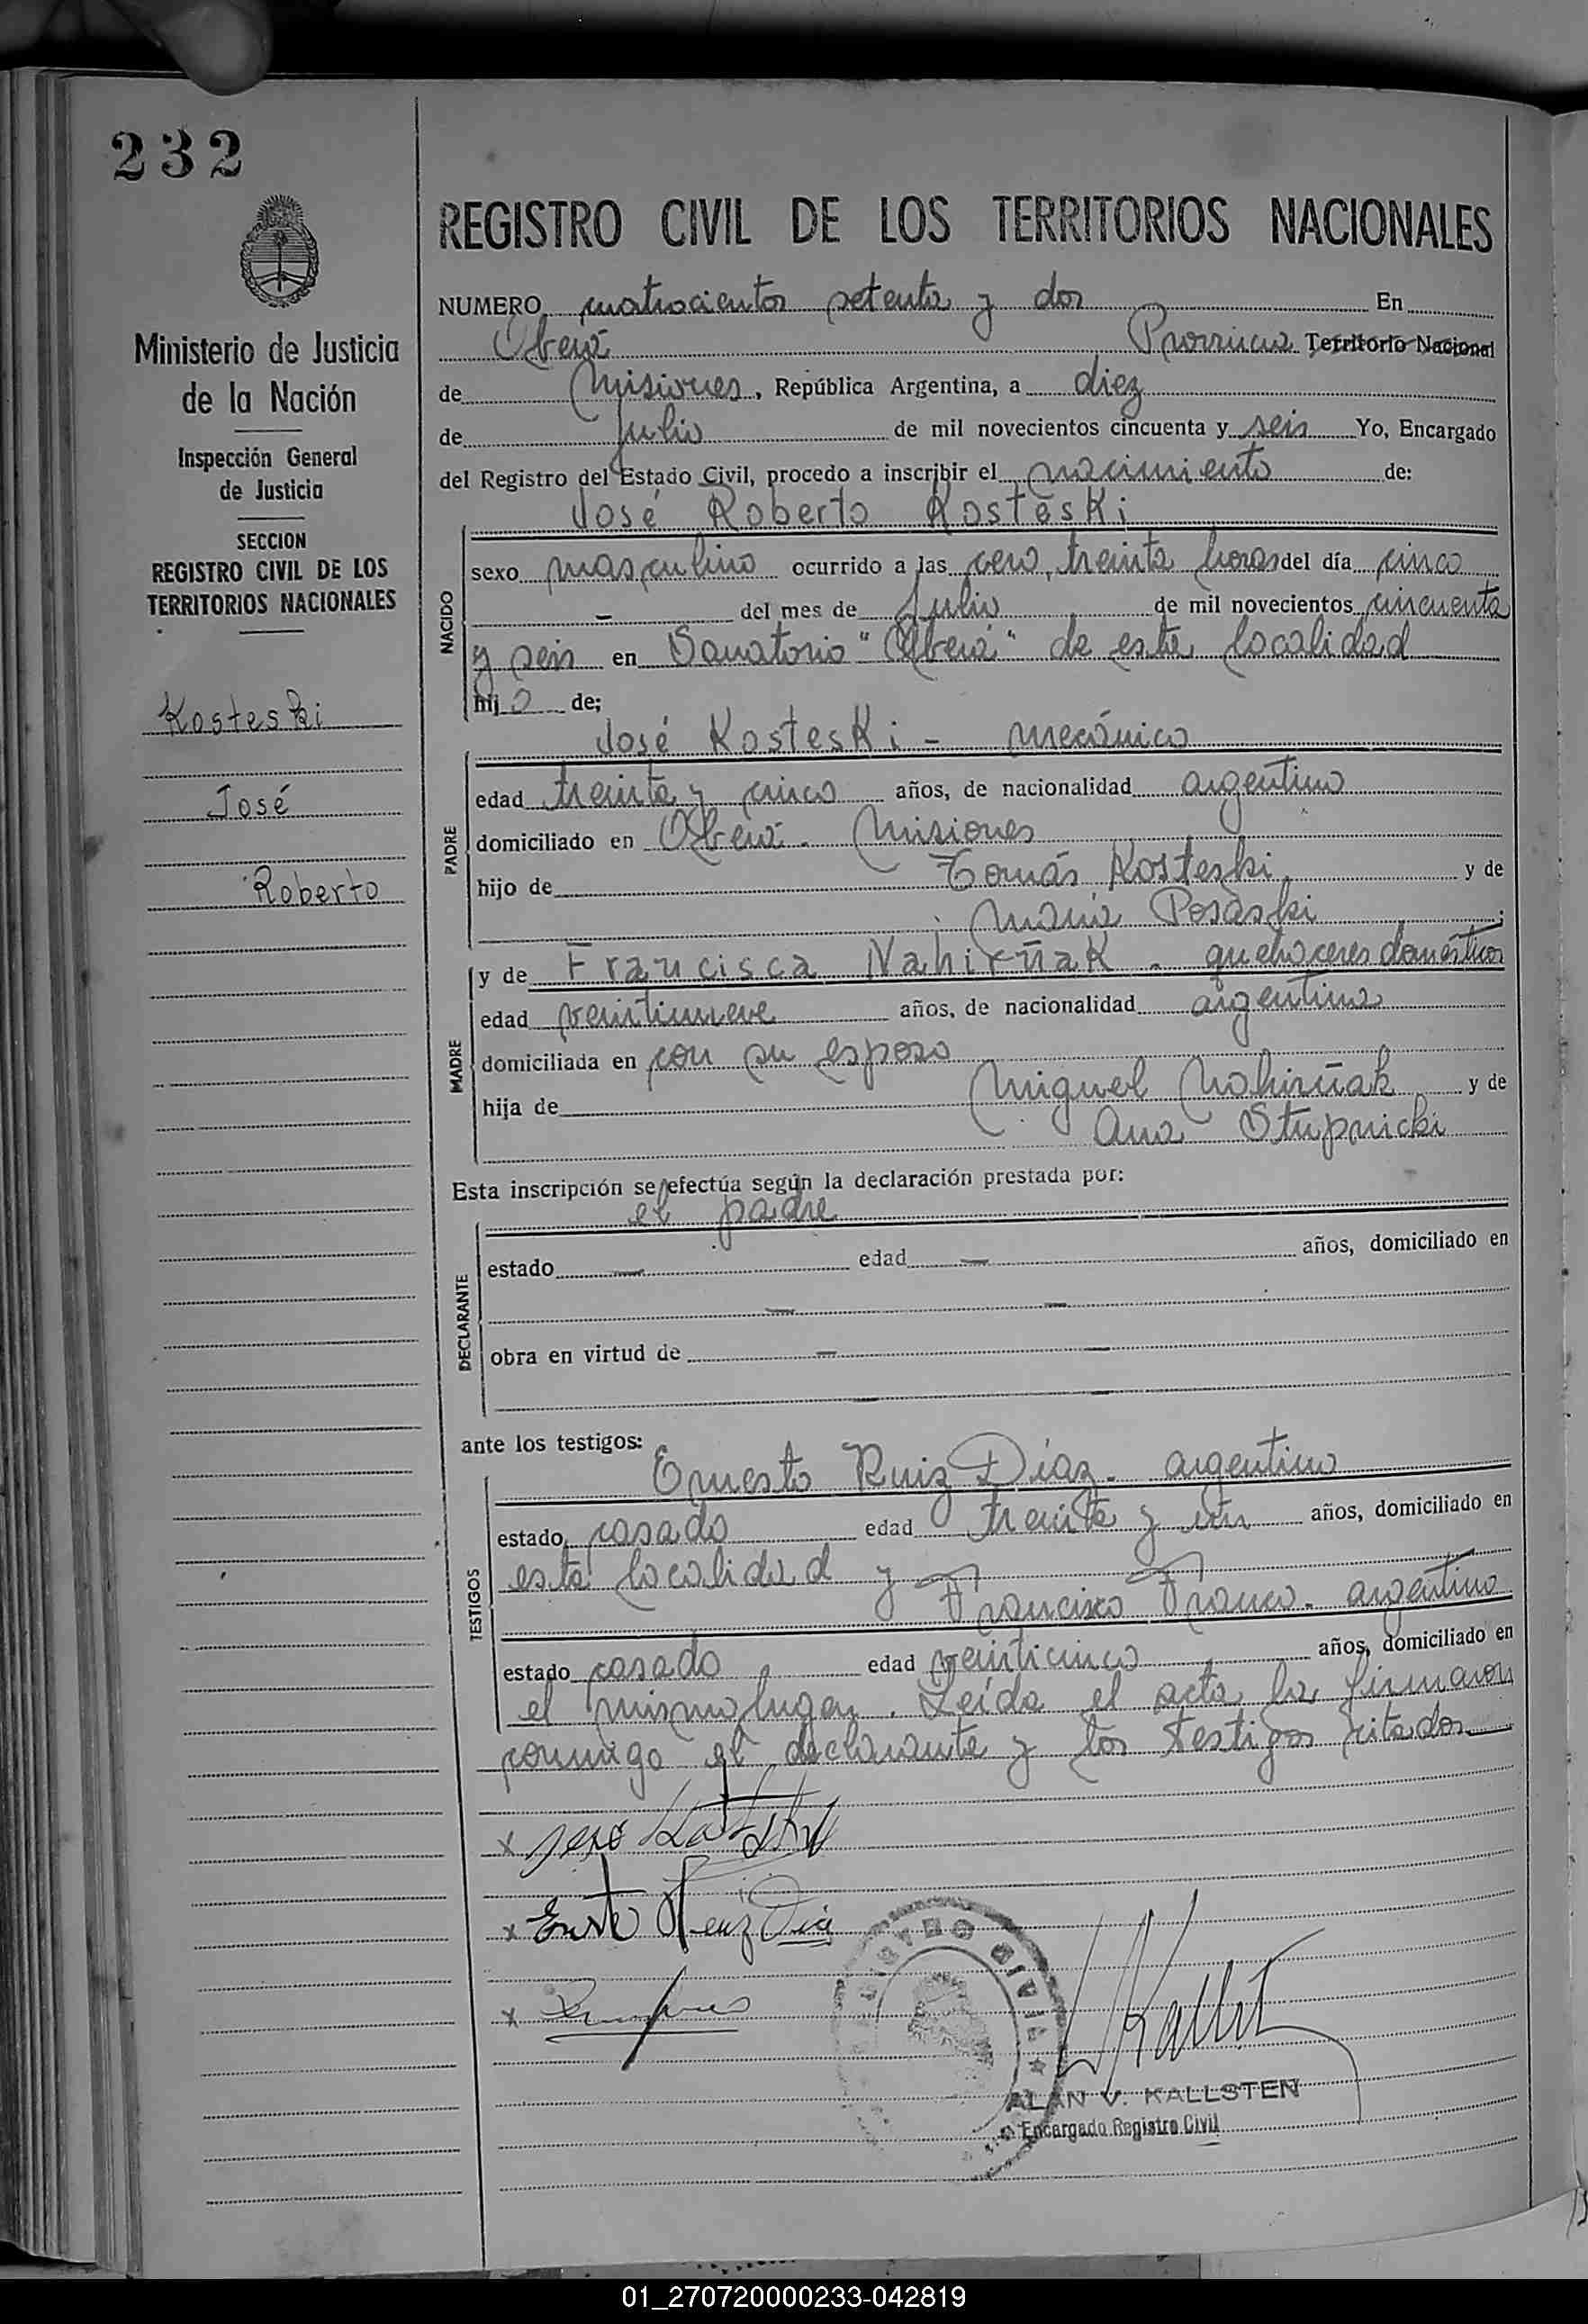 232
Ministerio de Justicia
de la Nación
Inspección General
de Justicia
SECCION
REGISTRO CIVIL DE LOS
TERRITORIOS NACIONALES
Kosteski
José
Roberto
REGISTRO CIVIL DE LOS TERRITORIOS NACIONALES
NUMERO cuatrocientos setenta y dos En
Oberá Provincia Territorio Nacional
de Misiones, República Argentina, a diez
de julio de mil novecientos cincuenta y seis Yo, Encargado
del Registro del Estado Civil, procedo a inscribir el nacimiento de:
José Roberto Kosteski
NACIDO
sexo masculino ocurrido a las cero, treinta horas del día cinco
— del mes de Julio de mil novecientos cincuenta
y seis en Sanatorio "Oberá" de esta localidad
hijo de;
José Kosteski - mecánico
PADRE
edad treinta y cinco años, de nacionalidad argentino
domiciliado en Oberá. Misiones
hijo de Tomás Kosteski y de
María Posaski;
MADRE
y de Francisca Nahirñak - quehaceres domésticos
edad veintinueve años, de nacionalidad argentina
domiciliada en con su esposo
hija de Miguel Nahirñak y de
Ana Stupnicki
Esta inscripción se efectúa según la declaración prestada por:
el padre
DECLARANTE
estado — edad — años, domiciliado en
— —
obra en virtud de — —
— —
ante los testigos:
TESTIGOS
Ernesto Ruiz Díaz. argentino
estado casado edad treinta y un años, domiciliado en
esta localidad y
Francisco Franco. argentino
estado casado edad veinticinco años, domiciliado en
el mismo lugar. Leída el acta la firmaron
conmigo el declarante y los testigos citados—
x José
x Ruiz Diaz
x
REGISTRO CIVIL
ALAN V. KALLSTEN
Encargado Registro Civil
01_270720000233-042819